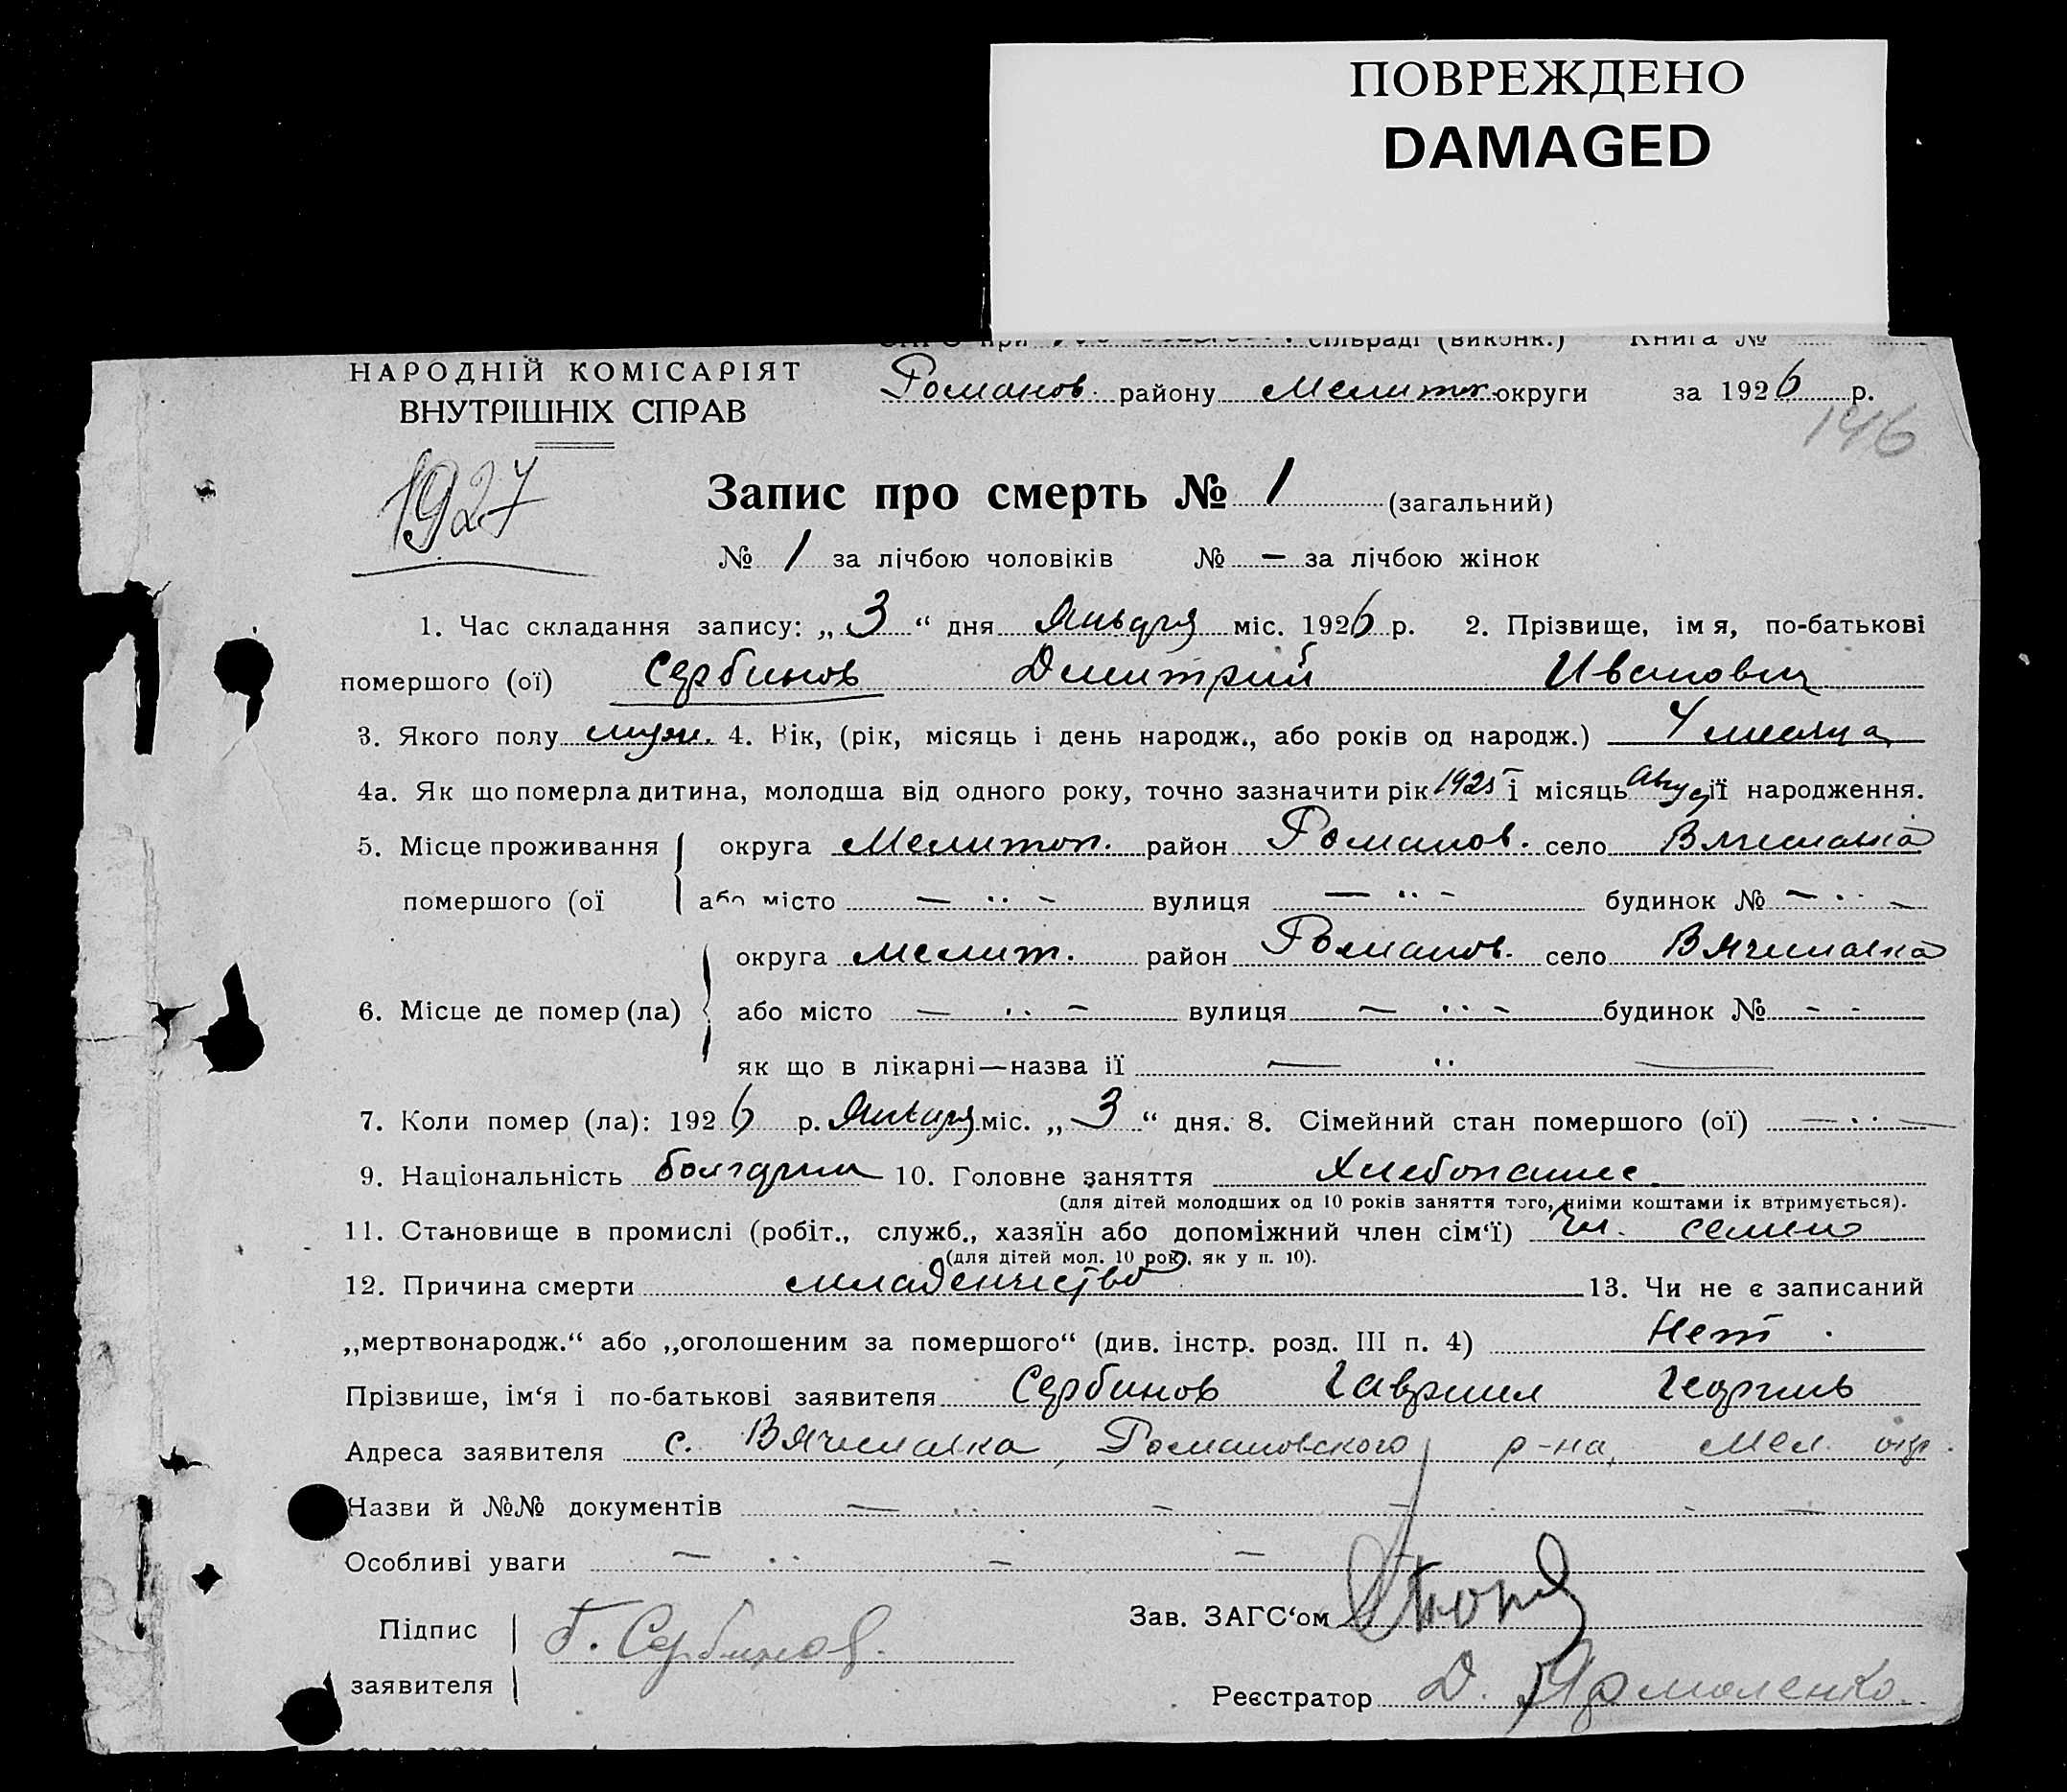 ПОВРЕЖДЕНО
DAMAGED
при сільраді (виконк.) Книга №
НАРОДНІЙ КОМІСАРІЯТ
ВНУТРІШНІХ СПРАВ
Романов. району Мелитоп. округи за 1926 р.
146
1927
Запис про смерть № 1 (загальний)
№ 1 за лічбою чоловіків № — за лічбою жінок
1. Час складання запису: „3“ дня Января міс. 1926 р. 2. Прізвище, імя, по-батькові
помершого (ої) Сербинов Дмитрий Иванович
3. Якого полу муж. 4. Вік, (рік, місяць і день народж., або років од народж.) 4 месяца
4а. Як що померла дитина, молодша від одного року, точно зазначити рік 1925 і місяць Авгус її народження.
5. Місце проживання округа Мелитоп. район Романов. село Вячеславка
помершого (ої або місто — „ — вулиця — „ — будинок № — „ —
округа Мелит. район Романов. село Вячеславка
6. Місце де помер (ла) або місто — „ — вулиця — „ — будинок № — -
як що в лікарні—назва її — „ —
7. Коли помер (ла): 1926 р. Января міс. „3“ дня. 8. Сімейний стан помершого (ої) — „ —
9. Національність болгарин 10. Головне заняття Хлебопашес
(для дітей молодших од 10 років заняття того, чиїми коштами їх втримується).
11. Становище в промислі (робіт., служб., хазяїн або допоміжний член сім‘ї) Чл. семьи
(для дітей мол. 10 рок., як у п. 10).
12. Причина смерти младенчество 13. Чи не є записаний
„мертвонародж.“ або „оголошеним за помершого“ (див. інстр. розд. III п. 4) Нет.
Прізвище, ім‘я і по-батькові заявителя Сербинов Гавриил Георгиев
Адреса заявителя с. Вячеславка, Романовского р-на, Мел. окр.
Назви й №№ документів — „ — — - — —
Особливі уваги — „ — —
Підпис Г. Сербинов. Зав. ЗАГС‘ом
заявителя Реєстратор Д. Ярмоленко.